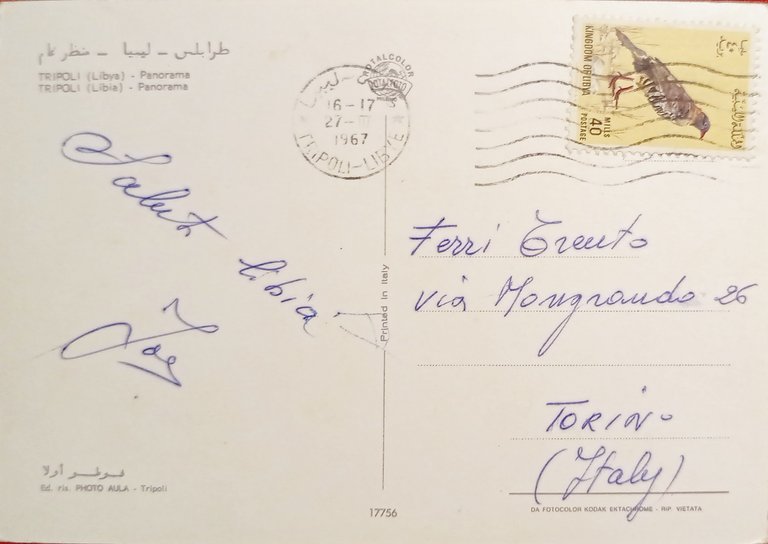 طرابلس – ليبيا – منظر عام
TRIPOLI (Libya) - Panorama
TRIPOLI (Libia) - Panorama
ROTALCOLOR
MILANO
16-17
27-III
1967
TRIPOLI-LIBYE
KINGDOM OF LIBYA
MILLS
40
POSTAGE
Saluti
libia
Ferri Trento
via Mongrando 26
TORINO
(Italy)
Printed in Italy
Ed. ris. PHOTO AULA - Tripoli
17756
DA FOTOCOLOR KODAK EKTACHROME - RIP. VIETATA